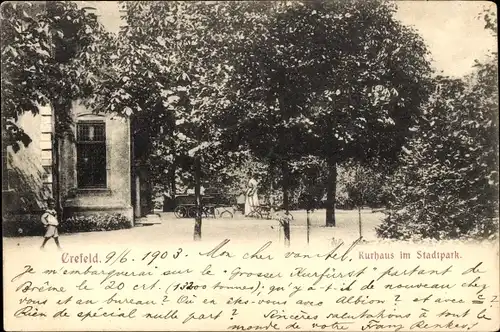 Crefeld. 9/6. 1903. Mon cher van
Kurhaus im Stadtpark.
Je m'embarquerai sur le "Grosser Kurfürst" partant de
Brême le 20 crt. (13200 tonnes); qu'y a-t-il de neuf chez
vous et au bureau? Où en êtes-vous avec Albion? et avec ?
Rien de spécial nulle part? Sincères salutations à tout le
monde de votre Franz